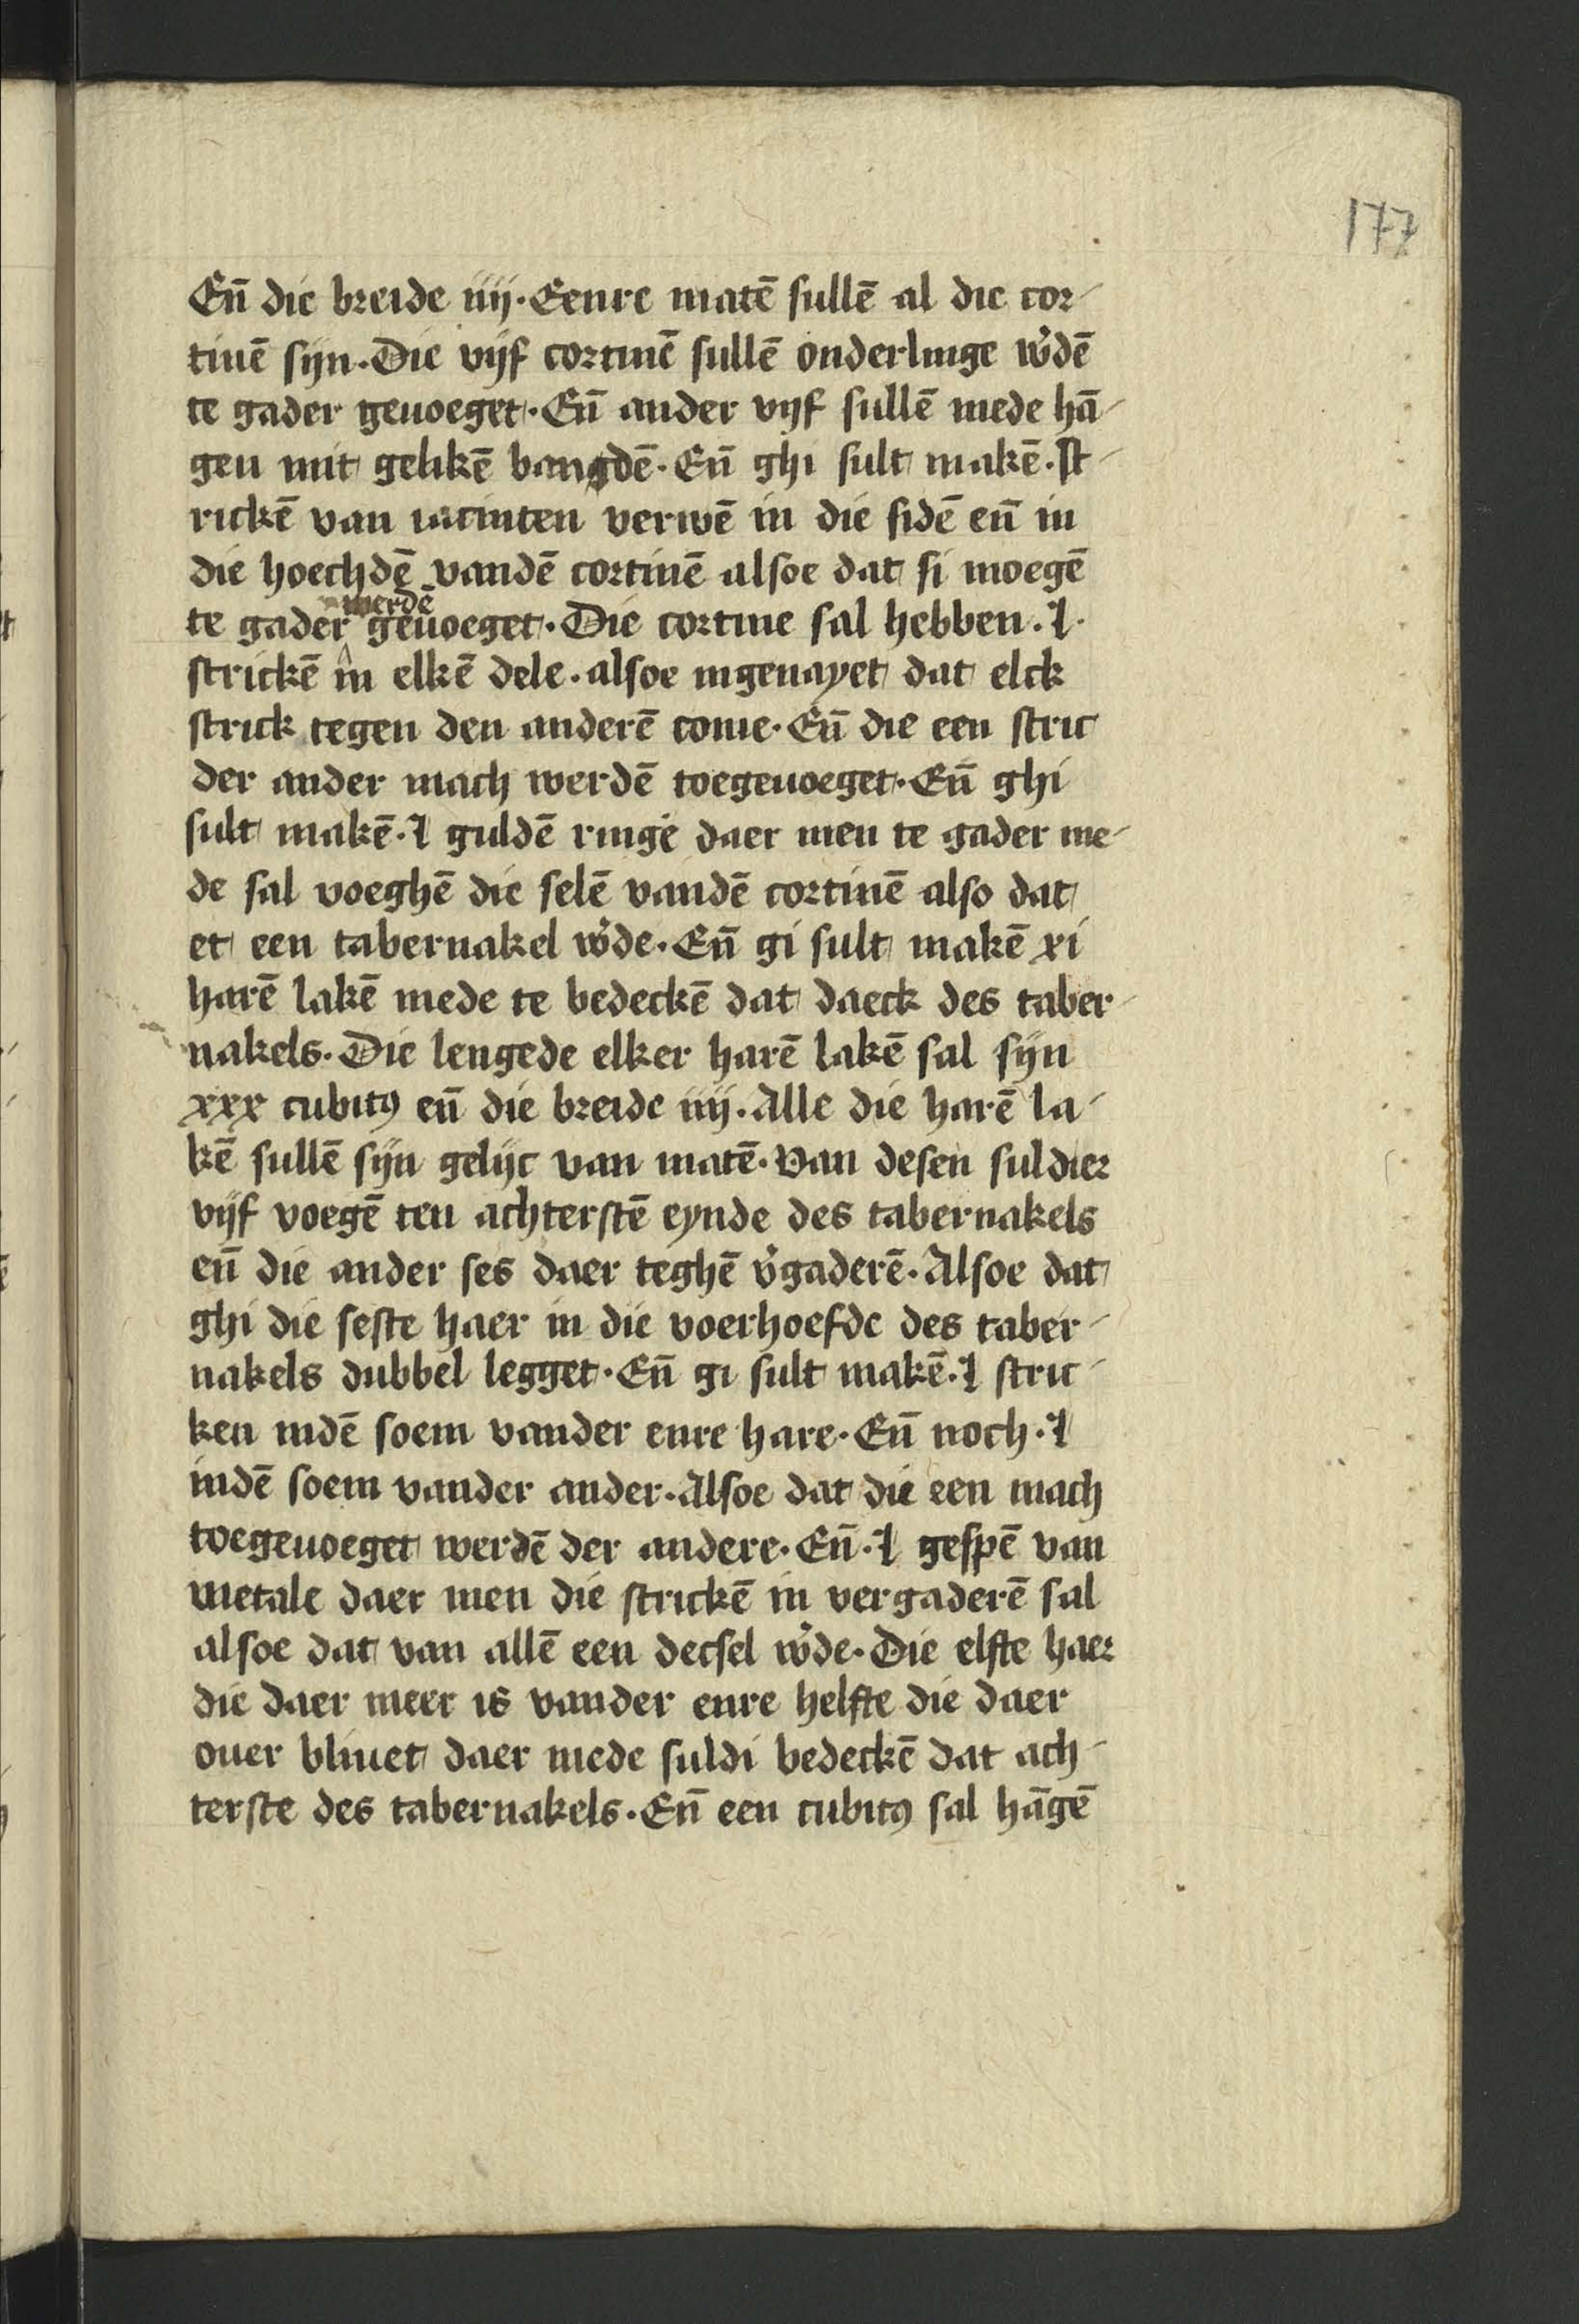 177
En̄ die breide iiij. Eenre matē sullē al die cor-
tinē sijn. Die vijf cortinē sullē onderlinge w̕dē
te gader geuoeget. En̄ ander vijf sullē mede hā-
gen mit gelikē bangdē. En̄ ghi sult makē. st-
rickē van iacinten verwē in die sidē en̄ in
die hoechdē vandē cortinē alsoe dat si moegē
te gader werdē geuoeget. Die cortine sal hebben. l.
strickē in elkē dele. alsoe ingenayet dat elck
strick tegen den anderē come. En̄ die een stric
der ander mach werdē toegeuoeget. En̄ ghi
sult makē. l guldē ringe daer men te gader me-
de sal voeghē die selē vandē cortinē also dat
et een tabernakel w̕de. En̄ gi sult makē xi
harē lakē mede te bedeckē dat daeck des taber-
nakels. Die lengede elker harē lakē sal sijn
xxx cubitꝯ en̄ die breide iiij. Alle die harē la-
kē sullē sijn gelijc van matē. Van desen suldier
vijf voegē ten achterstē eynde des tabernakels
en̄ die ander ses daer teghē v̕gaderē. Alsoe dat
ghi die seste haer in die voerhoefde des taber-
nakels dubbel legget. En̄ gi sult makē. l stric-
ken indē soem vander enre hare. En̄ noch. l
indē soem vander ander. Alsoe dat die een mach
toegeuoeget werdē der andere. En̄. l gespē van
metale daer men die strickē in vergaderē sal
alsoe dat van allē een decsel w̕de. Die elfte haer
die daer meer is vander enre helfte die daer
ouer bliuet daer mede suldi bedeckē dat ach-
terste des tabernakels. En̄ een cubitꝯ sal hāgē